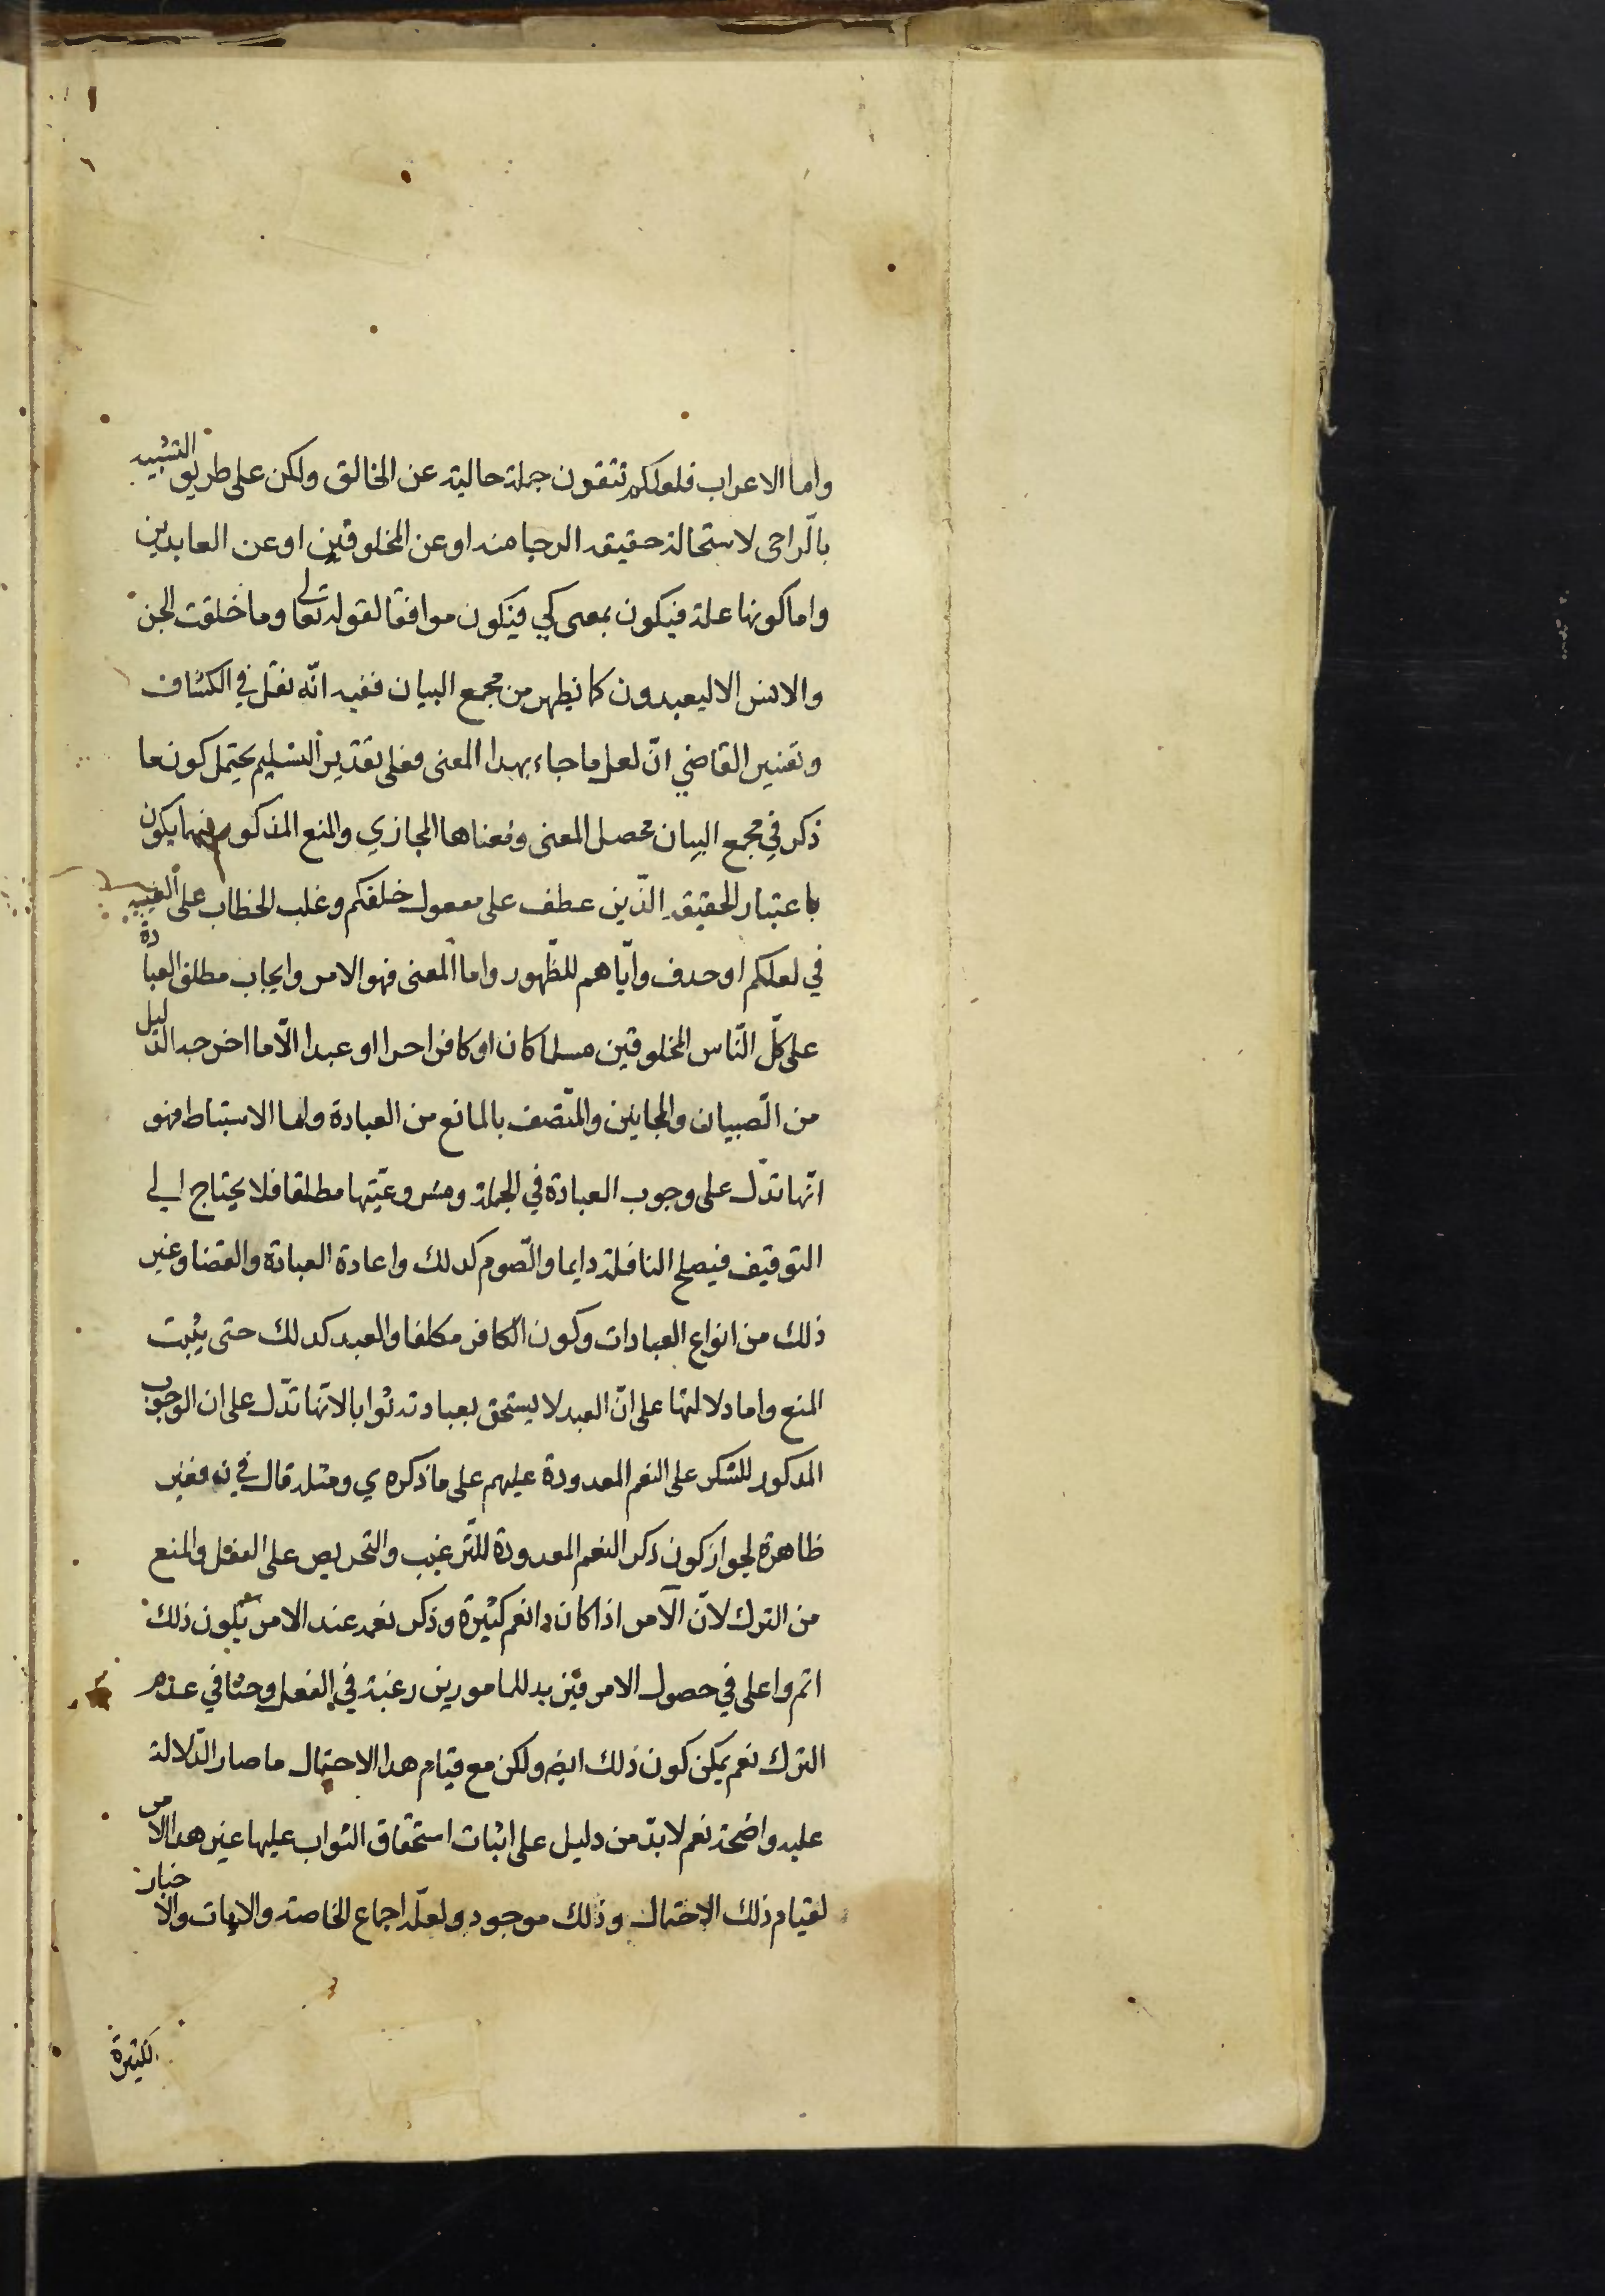 واما الاعراب فلعلكم تتقون جملة حالية عن الخالق ولكن على طريق التشبيه
بالراجى لاستحالة حقيقة الرجا منه او عن المخلوقين او عن العابدين
واما كونها علة فيكون بمعنى كي فيكون موافقا لقوله تعالى وما خلقت الجن
والانس الا ليعبدون كما يظهر من مجمع البيان ففيه انّه نقل في الكشاف
وتفسير القاضي انّ لعل ما جاء بهذا المعنى فعلى تقدير التسليم يحتمل كون ما
ذكر في مجمع البيان محصل المعنى ومعناها المجازي والمنع المذكور فيهما يكون
باعتبار الحقيقة الّذين عطف على مفعول خلقكم وغلب الخطاب على الغيبة
في لعلكم او حذف وايّاهم للظّهور واما المعنى فهو الامر وايجاب مطلق العبادة
على كلّ النّاس المخلوقين مسلما كان او كافرا حرا او عبدا الّا ما اخرجه الدليل
من الصّبيان والمجانين والمتّصف بالمانع من العبادة واما الاستنباط فهو
انّها تدّل على وجوب العبادة في الجملة ومشروعيّتها مطلقا فلا يحتاج الى
التوقيف فيصلح النافلة دايما والصّوم كذلك واعادة العبادة والقضا وغير
ذلك من انواع العبادات وكون الكافر مكلفا والعبد كذلك حتى يثبت
المنع واما دلالتها على انّ العبد لا يستحق بعبادته ثوابا لانّها تدّل على ان الوجوب
المذكور للشكر على النعم المعدودة عليهم على ما ذكره ي ومثله قال في ف فغير
ظاهرة لجواز كون ذكر النعم المعدودة للتّرغيب والتحريص على الفعل والمنع
من الترك لانّ الآمر اذا كان ذا نعم كثيرة وذكر نعمه عند الامر يكون ذلك
اتم واعلى في حصول الامر فيزيد للمامورين رغبة في الفعل وحثا في عدم
الترك نعم يمكن كون ذلك ايضا ولكن مع قيام هذا الاحتمال ما صار الدّلالة
عليه واضحة نعم لا بدّ من دليل على اثبات استحقاق الثواب عليها غير هذا الامر
لقيام ذلك الاحتمال وذلك موجود ولعلّه اجماع الخاصة والايات والاخبار
الكثيرة